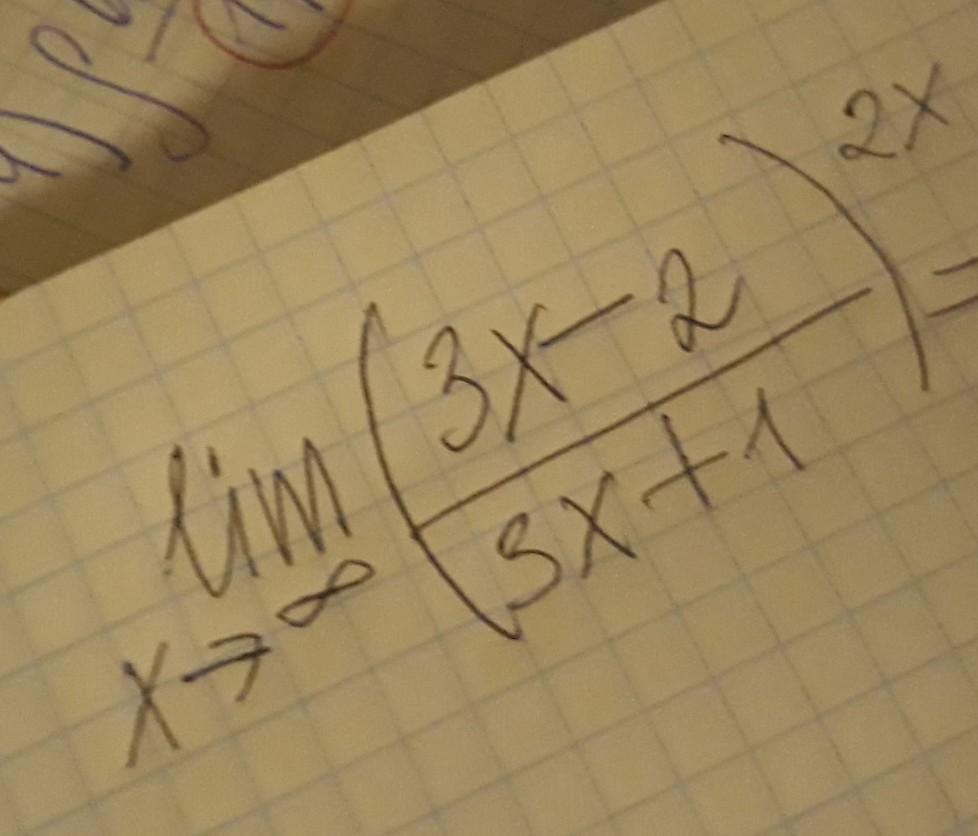 lim x→∞ (3x-2 / 3x+1)^2x =